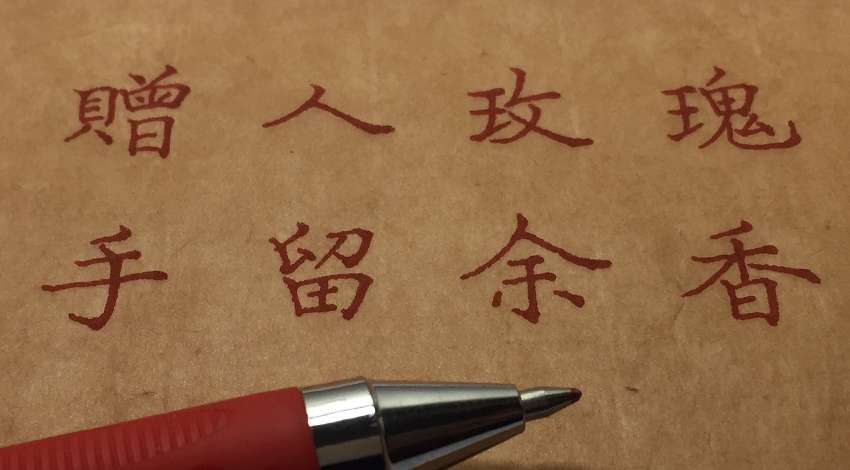 贈人玫瑰
手留余香